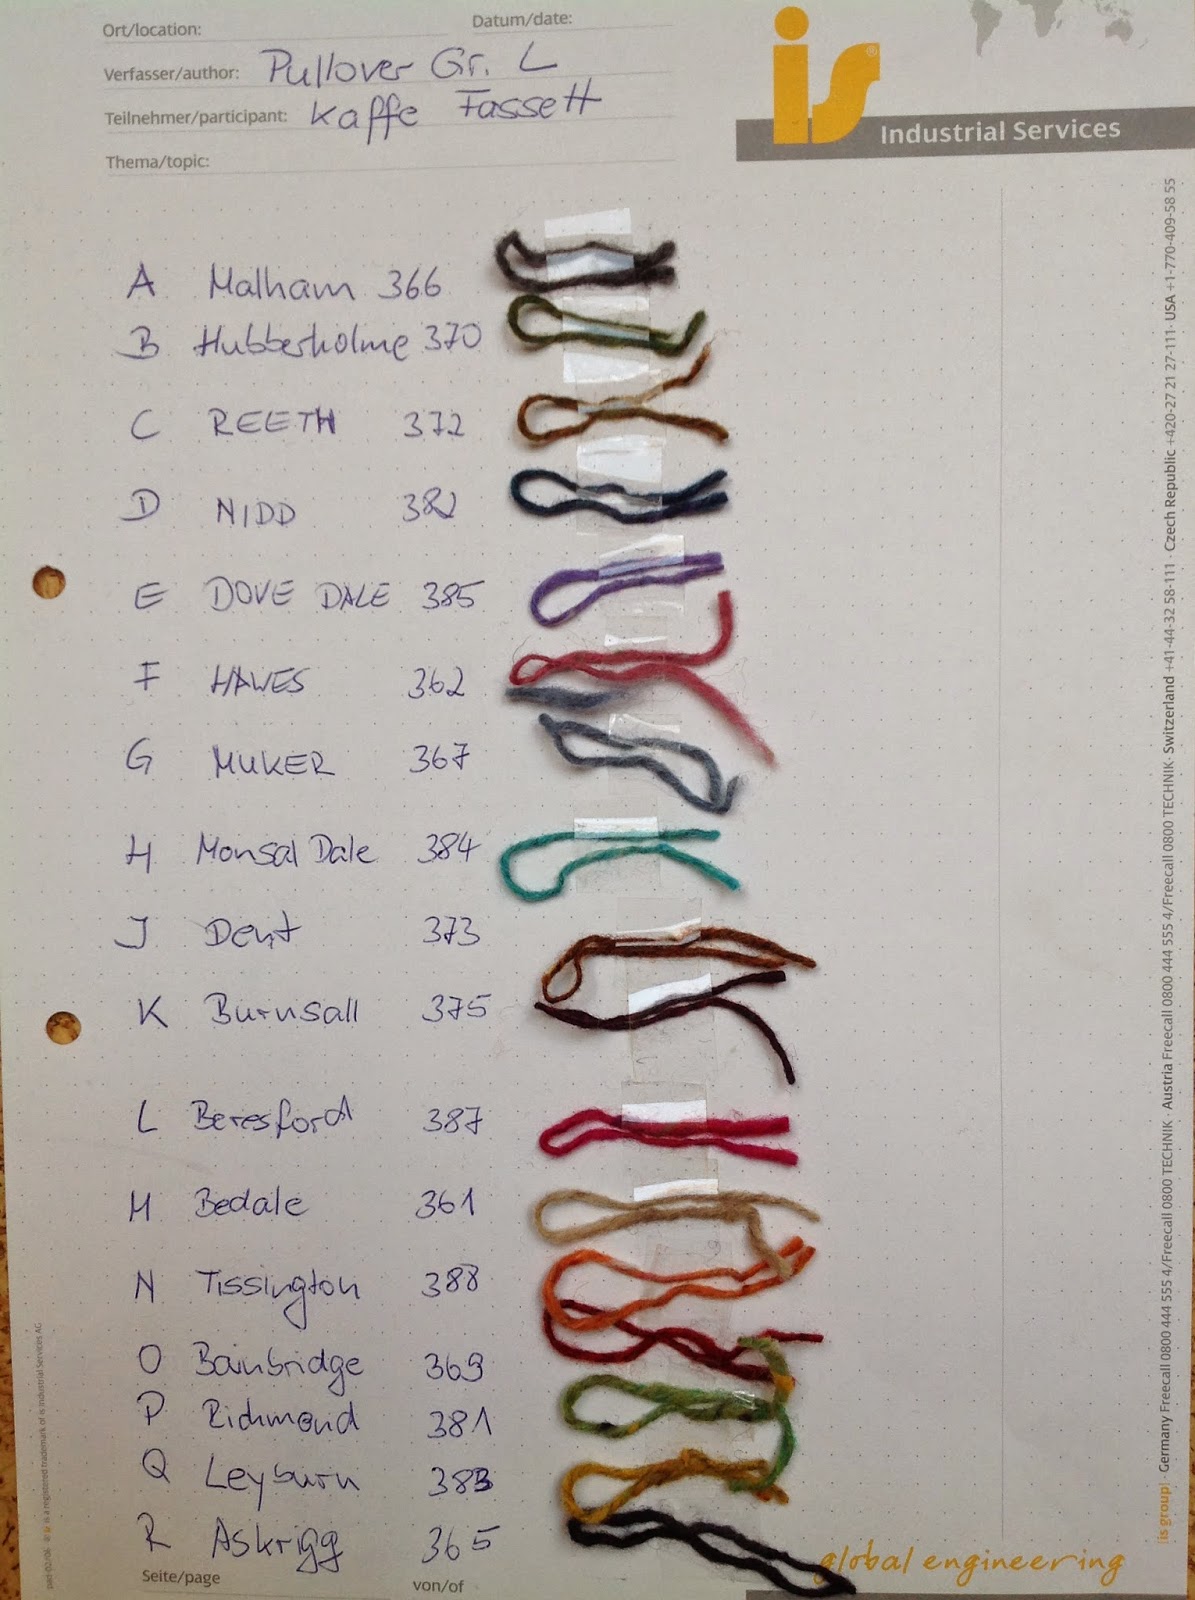 Ort/location: Datum/date:
Verfasser/author: Pullover Gr. L
Teilnehmer/participant: Kaffe Fassett
Thema/topic:
is®
Industrial Services
A Malham 366
B Hubberholme 370
C REETH 372
D NIDD 382
E DOVE DALE 385
F HAWES 362
G MUKER 367
H Monsal Dale 384
J Dent 373
K Burnsall 375
L Beresford 387
M Bedale 361
N Tissington 388
O Bainbridge 369
P Richmond 381
Q Leyburn 383
R Askrigg 365
Seite/page von/of
global engineering
[is group] · Germany Freecall 0800 444 555 4/Freecall 0800 TECHNIK · Austria Freecall 0800 444 555 4/Freecall 0800 TECHNIK· Switzerland +41-44-32 58-111 · Czech Republic +420-27 21 27-111· USA +1-770-409-58 55
is a registered trademark of is Industrial Services AG